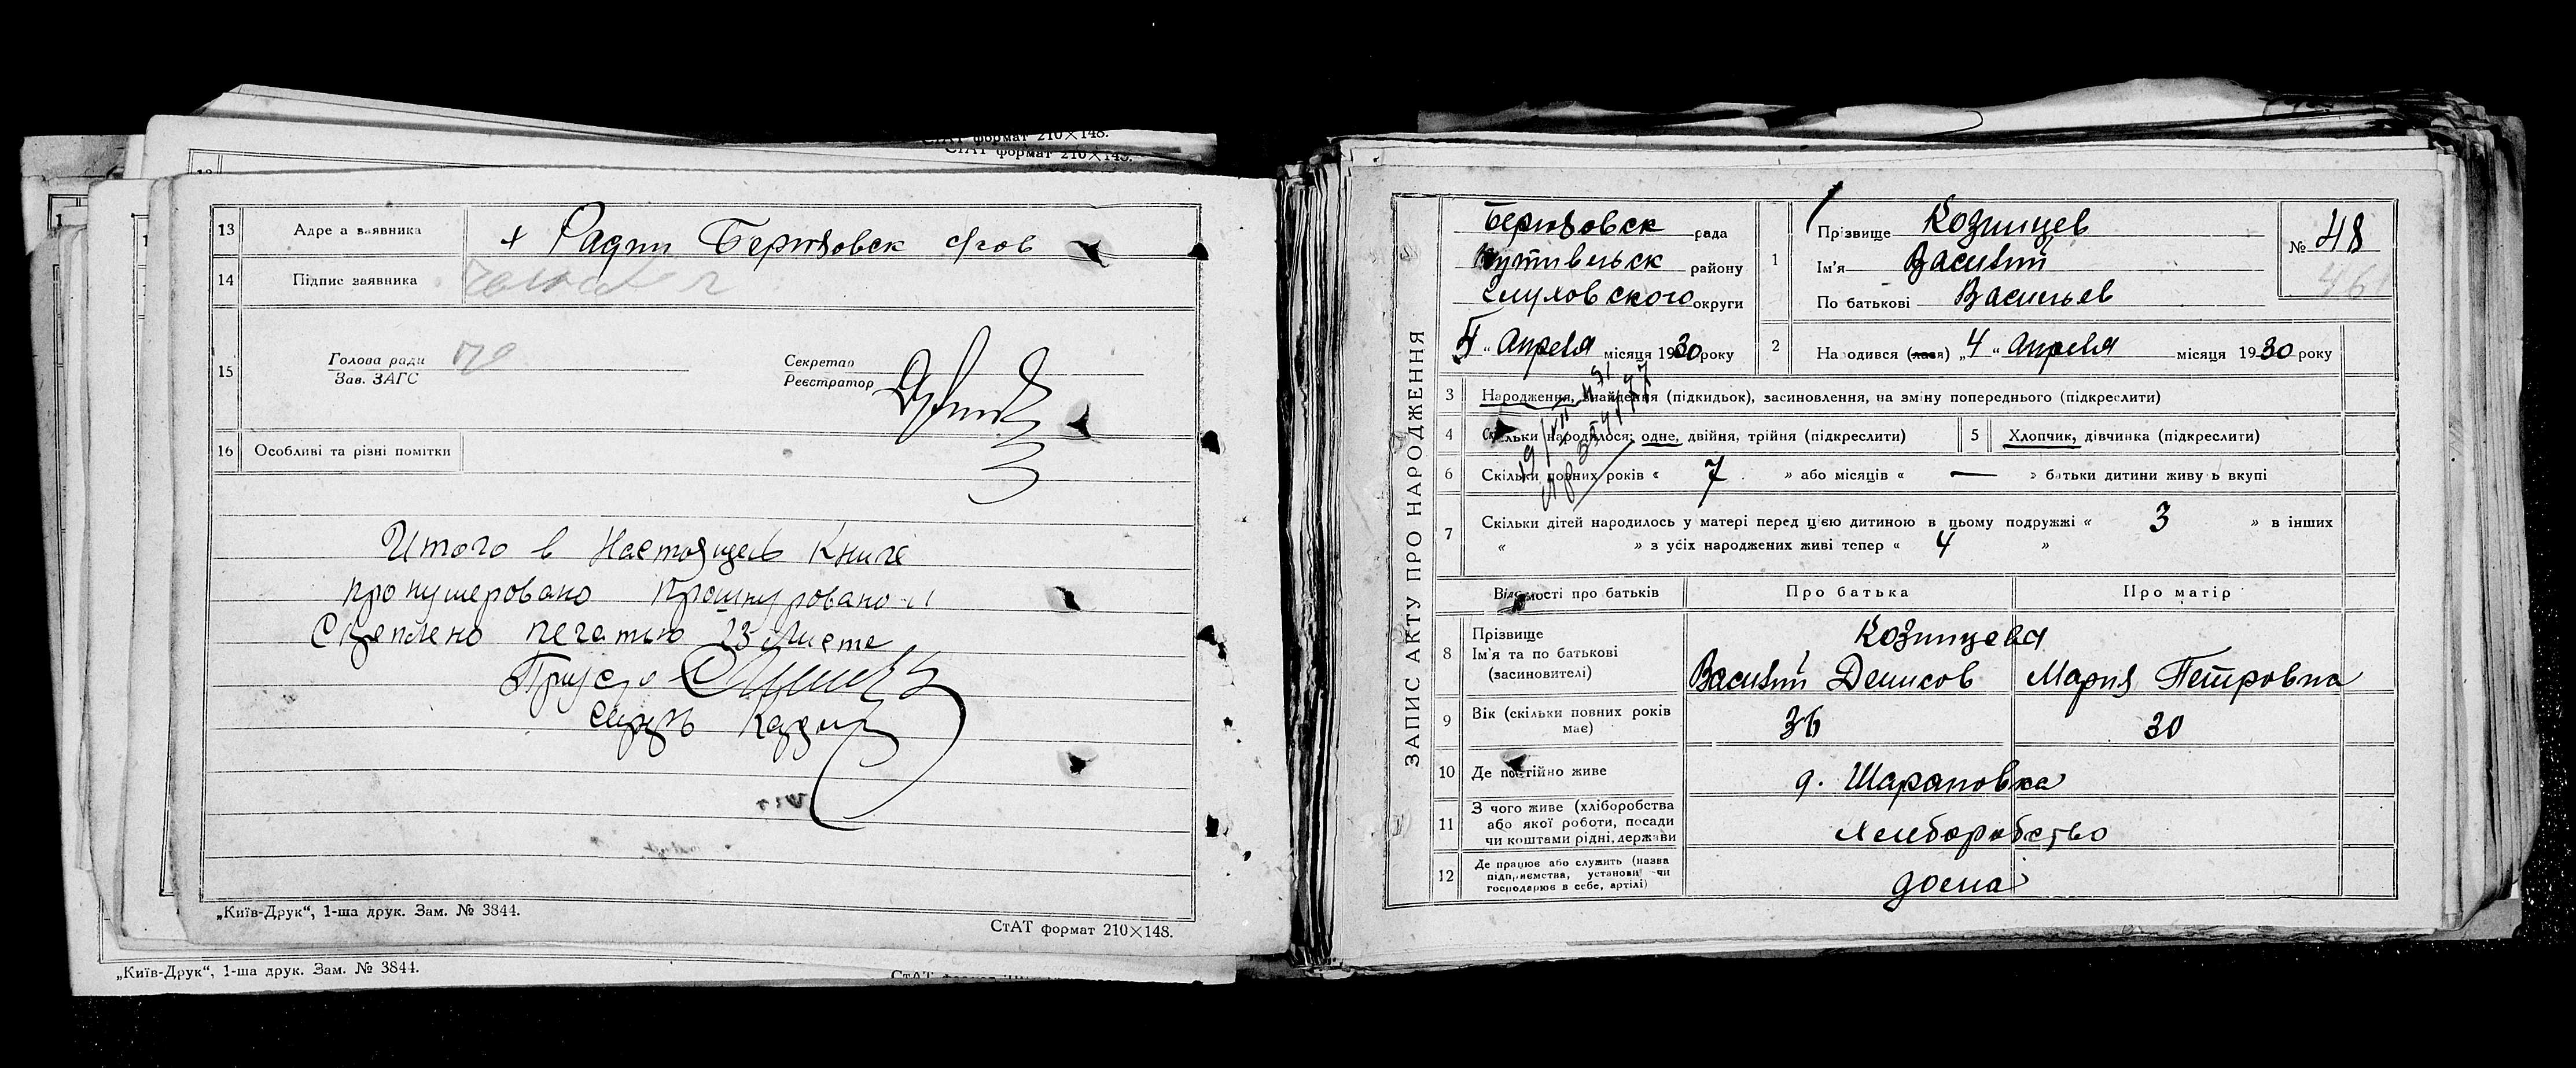 СтАТ формат 210×148.
СтАТ формат 210×148.
13 Адреса заявника Радни Берюзовск с/сов
14 Підпис заявника
15 Голова ради
Зав. ЗАГС
Секретар
Реєстратор
16 Особливі та різні помітки
Итого в Настоящей Книге
пронумеровано прошнуровано и
Скреплено печатью 23 листе
„Київ-Друк“, 1-ша друк. Зам. № 3844.
СтАТ формат 210×148.
„Київ-Друк“, 1-ша друк. Зам. № 3844.
ЗАПИС АКТУ ПРО НАРОДЖЕННЯ
Берюзовск рада
Путивльск району
Глуховского округи
4 „ Апреля місяця 1930 року
1 Прізвище Козинцев
Ім'я Василий
По батькові Васильев
№ 48
461
2 Народився (лася) „4“ Апреля місяця 1930 року
3 Народження, знайдення (підкидьок), засиновлення, на зміну попереднього (підкреслити)
4 Скільки народилося: одне, двійня, трійня (підкреслити)
5 Хлопчик, дівчинка (підкреслити)
6 Скільки повних років « 7 » або місяців « — » батьки дитини живуть вкупі
7 Скільки дітей народилось у матері перед цією дитиною в цьому подружжі « 3 » в інших
« » з усіх народжених живі тепер « 4 »
Відомості про батьків Про батька Про матір
8 Прізвище Козинцева
Ім'я та по батькові
(засиновителі) Василий Денисов Мария Петровна
9 Вік (скільки повних років
має) 36 30
10 Де постійно живе д. Шараповка
11 З чого живе (хліборобства
або якої роботи, посади
чи коштами рідні, держави хлеборобство
12 Де працює або служить (назва
підприємства, установи чи
господарює в себе, артілі) дома